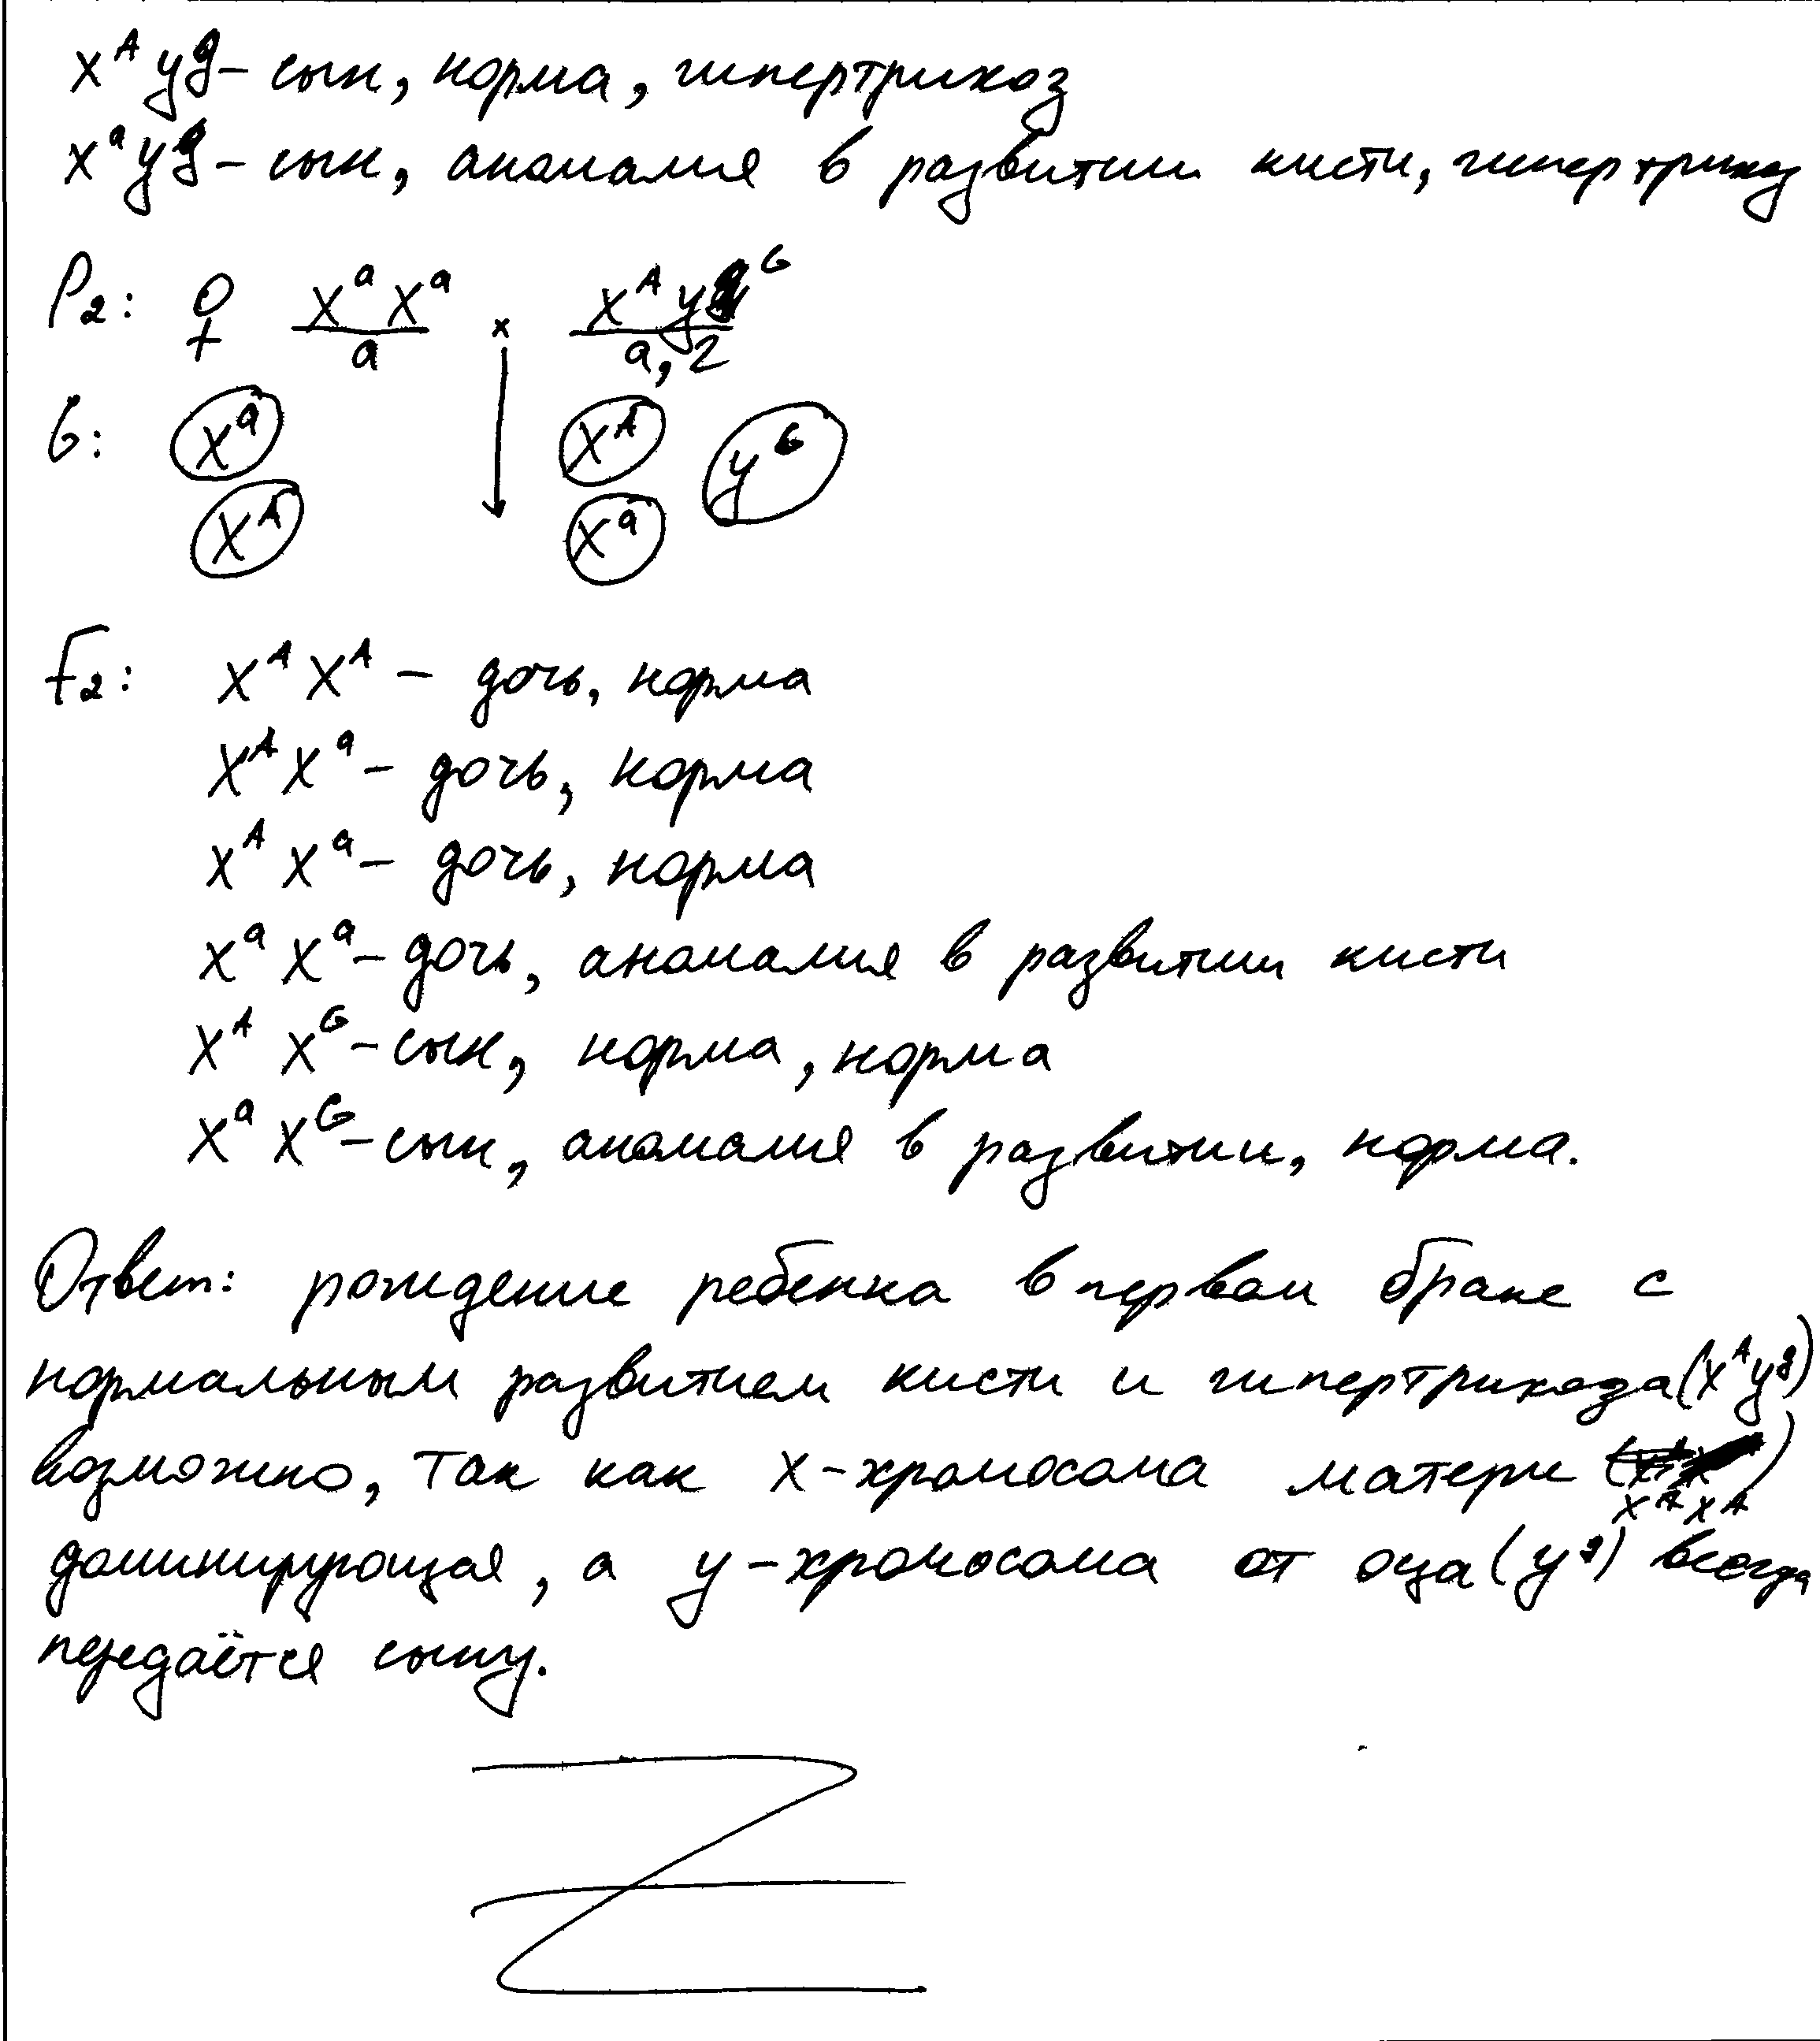 X^A y^g – сын, норма, гипертрихоз
X^a y^g – сын, аномалия в развитии кисти, гипертрихоз
P₂: ♀ X^a X^a × X^A y^G
a a, г
G: X^a X^A y^G
X^A X^a
F₂: X^A X^A – дочь, норма
X^A X^a – дочь, норма
X^A X^a – дочь, норма
X^a X^a – дочь, аномалия в развитии кисти
X^A X^G – сын, норма, норма
X^a X^G – сын, аномалия в развитии, норма.
Ответ: рождение ребенка в первом браке с
нормальным развитием кисти и гипертрихоза (X^A y^g)
возможно, так как X-хромосома матери X^A X^A)
доминирующая, а y-хромосома от оца (y^g) всегда
передаётся сыну.